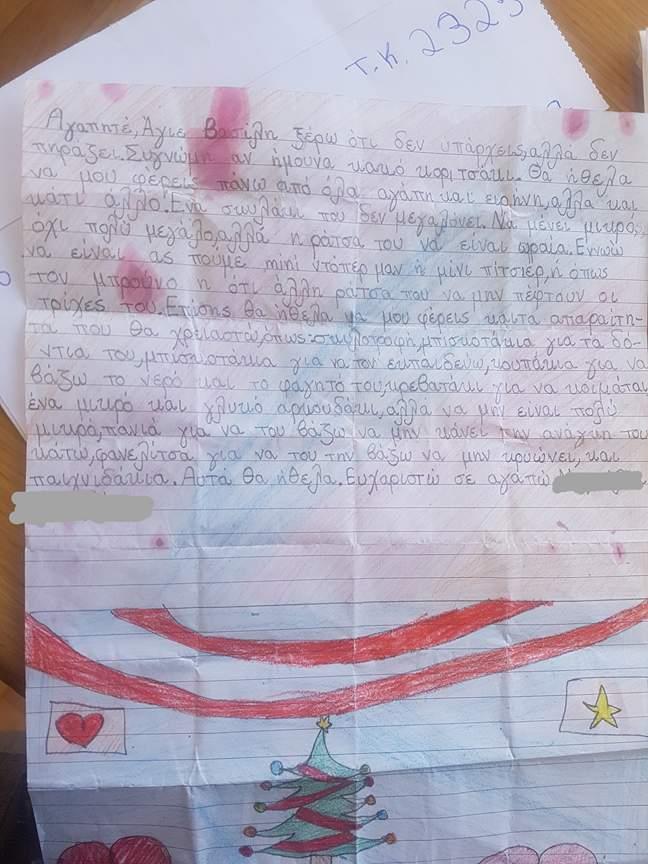 τ.κ. 2323
Αγαπητέ, Άγιε Βασίλη ξέρω ότι δεν υπάρχεις, αλλά δεν
πηράζει. Συγνώμη αν ήμουνα κακό κοριτσάκι. Θα ήθελα
να μου φέρεις πάνω από όλα, αγάπη και ειρήνη, αλλά και
κάτι άλλο! Ένα σκυλάκι που δεν μεγαλόνει. Να μένει μικρό,
όχι πολύ μεγάλο, αλλά η ράτσα του να είναι ωραία. Εννοώ
να είναι ας πούμε mini ντόπερ μαν ή μίνι πίτσιερ, ή όπως
τον μπρούνο ή ότι άλλη ράτσα που να μην πέφτουν οι
τρίχες του. Επίσης θα ήθελα να μου φέρεις και τα απαραίτη-
τα που θα χρειαστώ, όπως: σκυλοτροφή, μπισκοτάκια για τα δό-
ντια του, μπισκοτάκια για να τον εκπαιδεύω, κουπάκια για να
βάζω το νερό και το φαγητό του, κρεβατάκι για να κοιμάται
ένα μικρό και γλυκό αρκουδάκι, αλλά να μην ειναι πολύ
μικρό, πανιά για να του βάζω να μην κάνει την ανάγκη του
κάτω, φανελίτσα για να του την βάζω να μην κρυώνει, και
παιχνιδάκια. Αυτά θα ήθελα. Ευχαριστώ σε αγαπώ